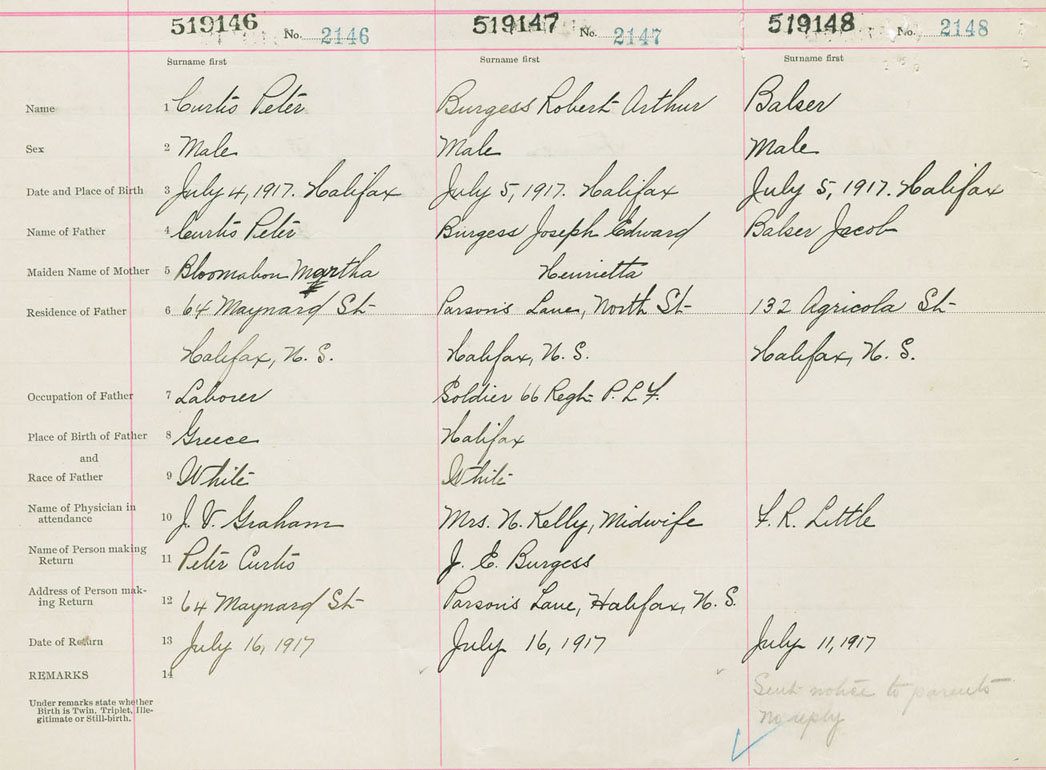 519146 No. 2146 519147 No. 2147 519148 No. 2148
Surname first Surname first Surname first
Name 1 Curtis Peter Burgess Robert Arthur Balser
Sex 2 Male Male Male
Date and Place of Birth 3 July 4, 1917. Halifax July 5, 1917. Halifax July 5, 1917. Halifax
Name of Father 4 Curtis Peter Burgess Joseph Edward Balser Jacob
Maiden Name of Mother 5 Martha Henrietta
Residence of Father 6 64 Maynard St Parson's Lane, North St 132 Agricola St
Halifax, N. S. Halifax, N. S. Halifax, N. S.
Occupation of Father 7 Laborer Soldier 66 Regt P. L. F.
Place of Birth of Father 8 Greece Halifax
and
Race of Father 9 White White
Name of Physician in
attendance 10 J. V. Graham Mrs. N. Kelly, Midwife F. R. Little
Name of Person making
Return 11 Peter Curtis J. E. Burgess
Address of Person mak-
ing Return 12 64 Maynard St Parson's Lane, Halifax, N. S.
Date of Return 13 July 16, 1917 July 16, 1917 July 11, 1917
REMARKS 14
Sent notice to parents
No reply
Under remarks state whether
Birth is Twin, Triplet, Ille-
gitimate or Still-birth.